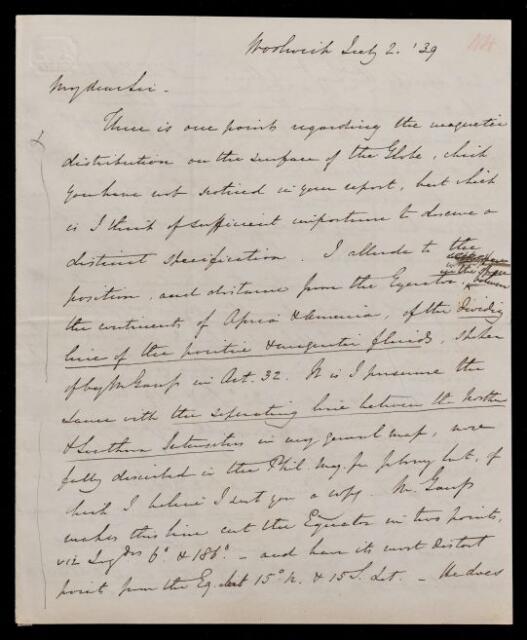 Woolwich July 2. '39
My dear Sir -
There is one point regarding the magnetic
distribution on the surface of the Globe, which
you have not noticed in your report, but which
is I think of sufficient importance to deserve a
distinct specification. I allude to the
position, and distance from the Equator, in the space between
the continents of Africa & America, of the dividing
line of the positive & negative fluids, spoken
of by M. Gauss in Art. 32. It is I presume the
same with the separating line between the Northern
& Southern Intensities in my general map, more
fully described in the Phil. Mag. for last, of
which I believe I sent you a copy. M. Gauss
makes this line cut the Equator in two points,
viz Longdes 6° & 186°. - and have its most distant
points from the Eq. Lat 15° N. & 15 S. Lat. - He does